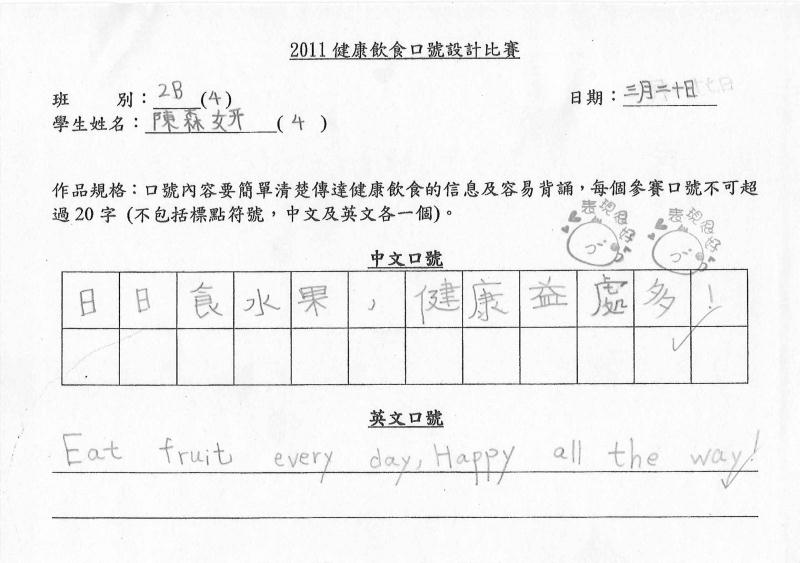 2011 健康飲食口號設計比賽
班 別：2B (4) 日期：三月三十日
學生姓名：陳森妍 ( 4 )
作品規格：口號內容要簡單清楚傳達健康飲食的信息及容易背誦，每個參賽口號不可超
過 20 字 (不包括標點符號，中文及英文各一個)。
表現很好 表現很好
中文口號
日日食水果，健康益處多！
英文口號
Eat fruit every day, Happy all the way!